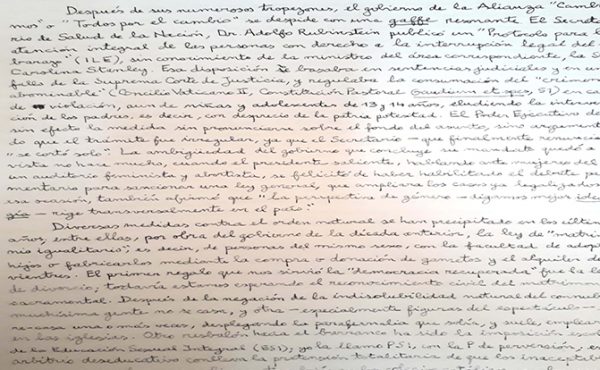 Después de sus numerosos tropezones, el gobierno de la Alianza "Cambie
mos" o "Todos por el cambio" se despide con una gaffe resonante. El Secreta
rio de Salud de la Nación, Dr. Adolfo Rubinstein publicó un "Protocolo para l
atención integral de las personas con derecho a la interrupción legal del
barazo" (ILE), sin conocimiento de la ministra del área correspondiente, la S
Carolina Stanley. Esa disposición se basaba en sentencias judiciales y en
fallo de la Suprema Corte de Justicia, y regulaba la consumación del "crimen
abominable" (Concilio Vaticano II, Constitución Pastoral Gaudium et spes, 51) en ca
de violación, aun de niñas y adolescentes de 13 y 14 años, eludiendo la interven
ción de los padres, es decir, con desprecio de la patria potestad. El Poder Ejecutivo de
sin efecto la medida sin pronunciarse sobre el fondo del asunto, sino argumen
do que el trámite fue irregular, ya que el Secretario – que finalmente renunció
"se cortó solo". La ambigüedad del gobierno que concluye su mandato quedó a
vista no hace mucho, cuando el presidente saliente, hablando ante mujeres del
un auditorio feminista y abortista, se felicitó de haber habilitado el debate p
mentario para sancionar una ley general, que ampliara los casos ya legalizados
esa ocasión, también afirmó que "la perspectiva de género – digamos mejor ideo
gía – rige transversalmente en el país".
Diversas medidas contra el orden natural se han precipitado en los últim
años, entre ellas, por obra del gobierno de la década anterior, la ley de "matri
nio igualitario", es decir, de personas del mismo sexo, con la facultad de adop
hijos o fabricarlos mediante la compra o donación de gametos y el alquiler de
vientres. El primer regalo que nos sirvió la "democracia recuperada" fue la l
de divorcio; todavía estamos esperando el reconocimiento civil del matrim
sacramental. Después de la negación de la indisolubilidad natural del connub
muchísima gente no se casa, y otra – especialmente figuras del espectáculo –
re-casa una o más veces, desplegando la parafernalia que solía, y suele, emplea
en las iglesias. Otro resbalón hacia el barranco ha sido la imposición escol
de la Educación Sexual Integral (ESI), yo la llamo PSI, con la P de perversión, e
arbitrio deseducativo conlleva la pretensión totalitaria de que los inaceptab